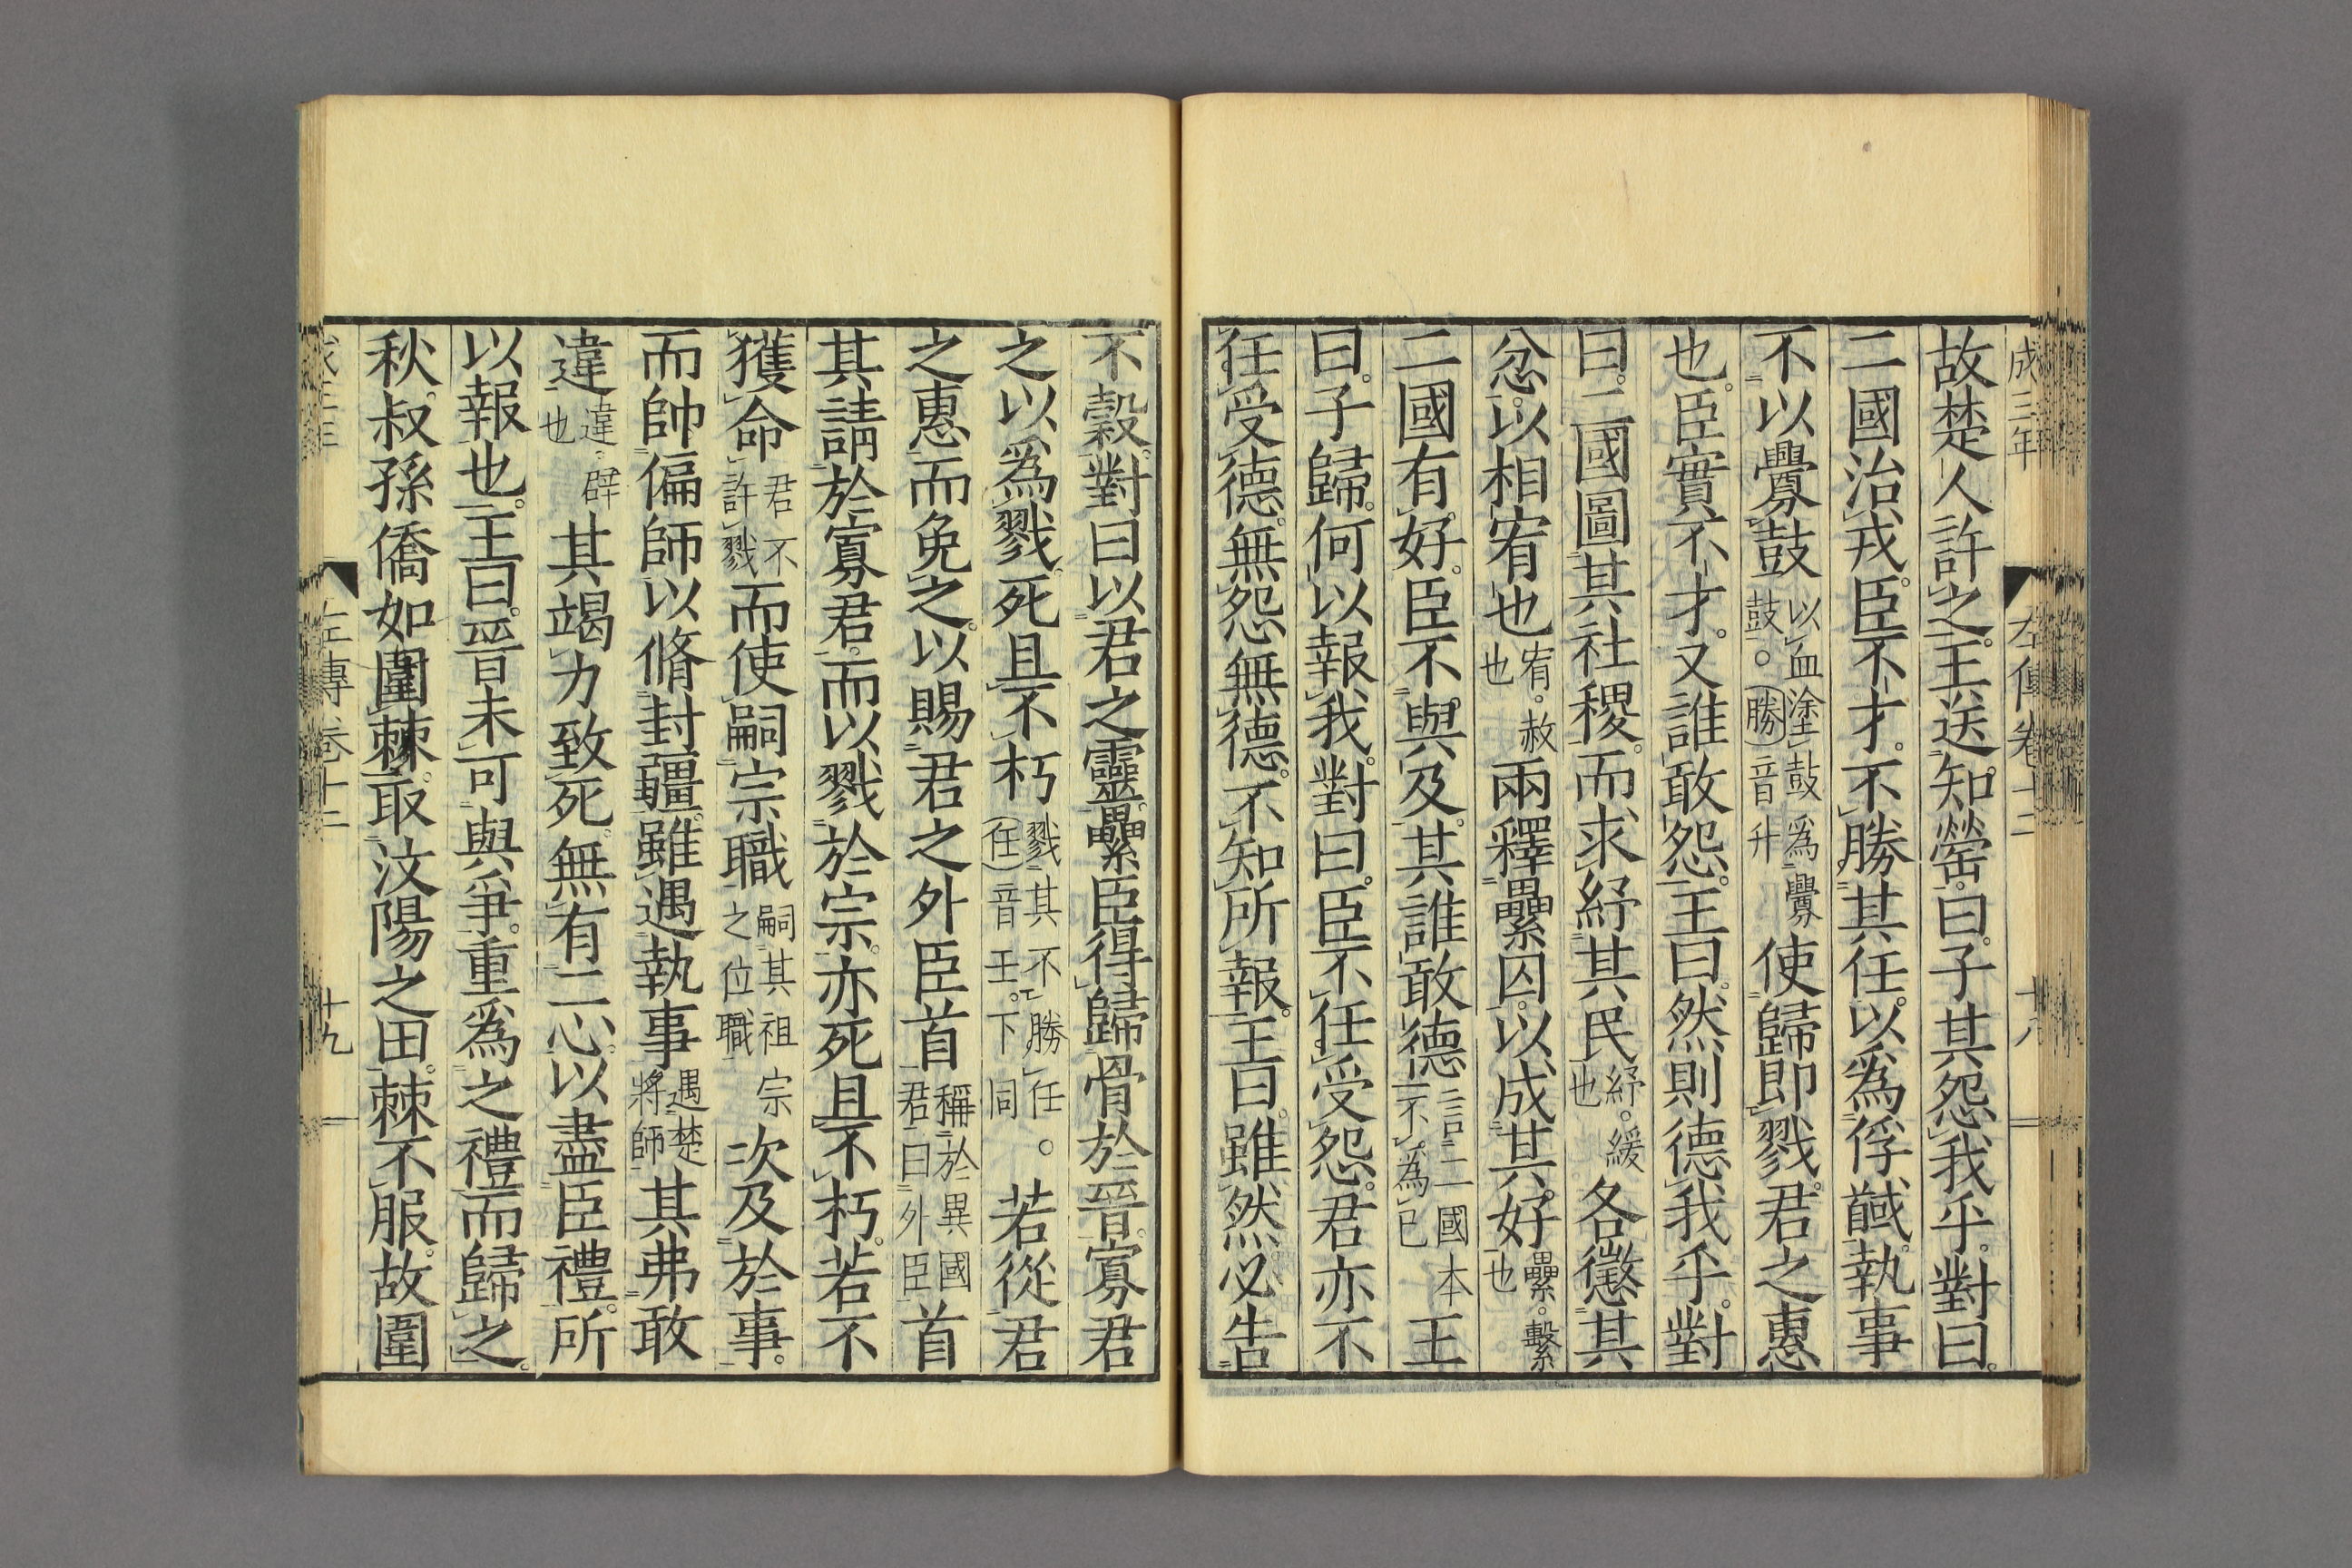 成三年 左傳卷十二 十八
故楚人許之。王送知罃。曰。子其怨我乎。對曰。
二國治戎。臣不才。不勝其任。以爲俘馘。執事
不以釁鼓以血塗鼓爲釁鼓。勝音升使歸即戮。君之惠
也。臣實不才。又誰敢怨。王曰。然則德我乎。對
曰。二國圖其社稷。而求紓其民紓。緩也各懲其
忿。以相宥也宥。赦也兩釋纍囚。以成其好纍。繫也
二國有好。臣不與及。其誰敢德言二國本不爲己王
曰。子歸。何以報我。對曰。臣不任受怨。君亦不
任受德。無怨無德。不知所報。王曰。雖然必告
不穀。對曰以君之靈。纍臣得歸骨於晉。寡君
之以爲戮。死且不朽戮其不勝任。任音壬。下同若從君
之惠而免之。以賜君之外臣首稱於異國君曰外臣首
其請於寡君。而以戮於宗。亦死且不朽。若不
獲命君不許戮而使嗣宗職嗣其祖宗之位職次及於事。
而帥偏師以脩封疆。雖遇執事遇楚將師其弗敢
違違。辟也其竭力致死。無有二心。以盡臣禮。所
以報也。王曰。晉未可與爭。重爲之禮而歸之。
秋。叔孫僑如圍棘。取汶陽之田。棘不服。故圍
左傳卷十二 十九